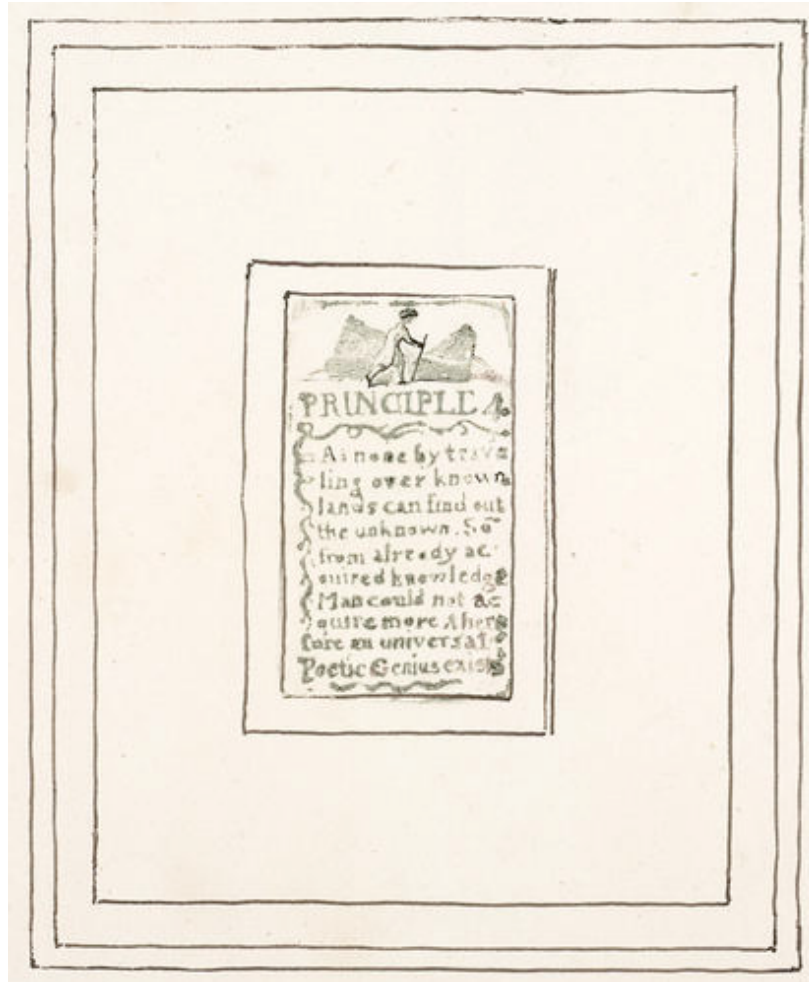 PRINCIPLE 4.
As none by trave
ling over known
lands can find out
the unknown. So
from already ac-
quired knowledge
Man could not ac
quire more. ther
fore an universal
Poetic Genius exists